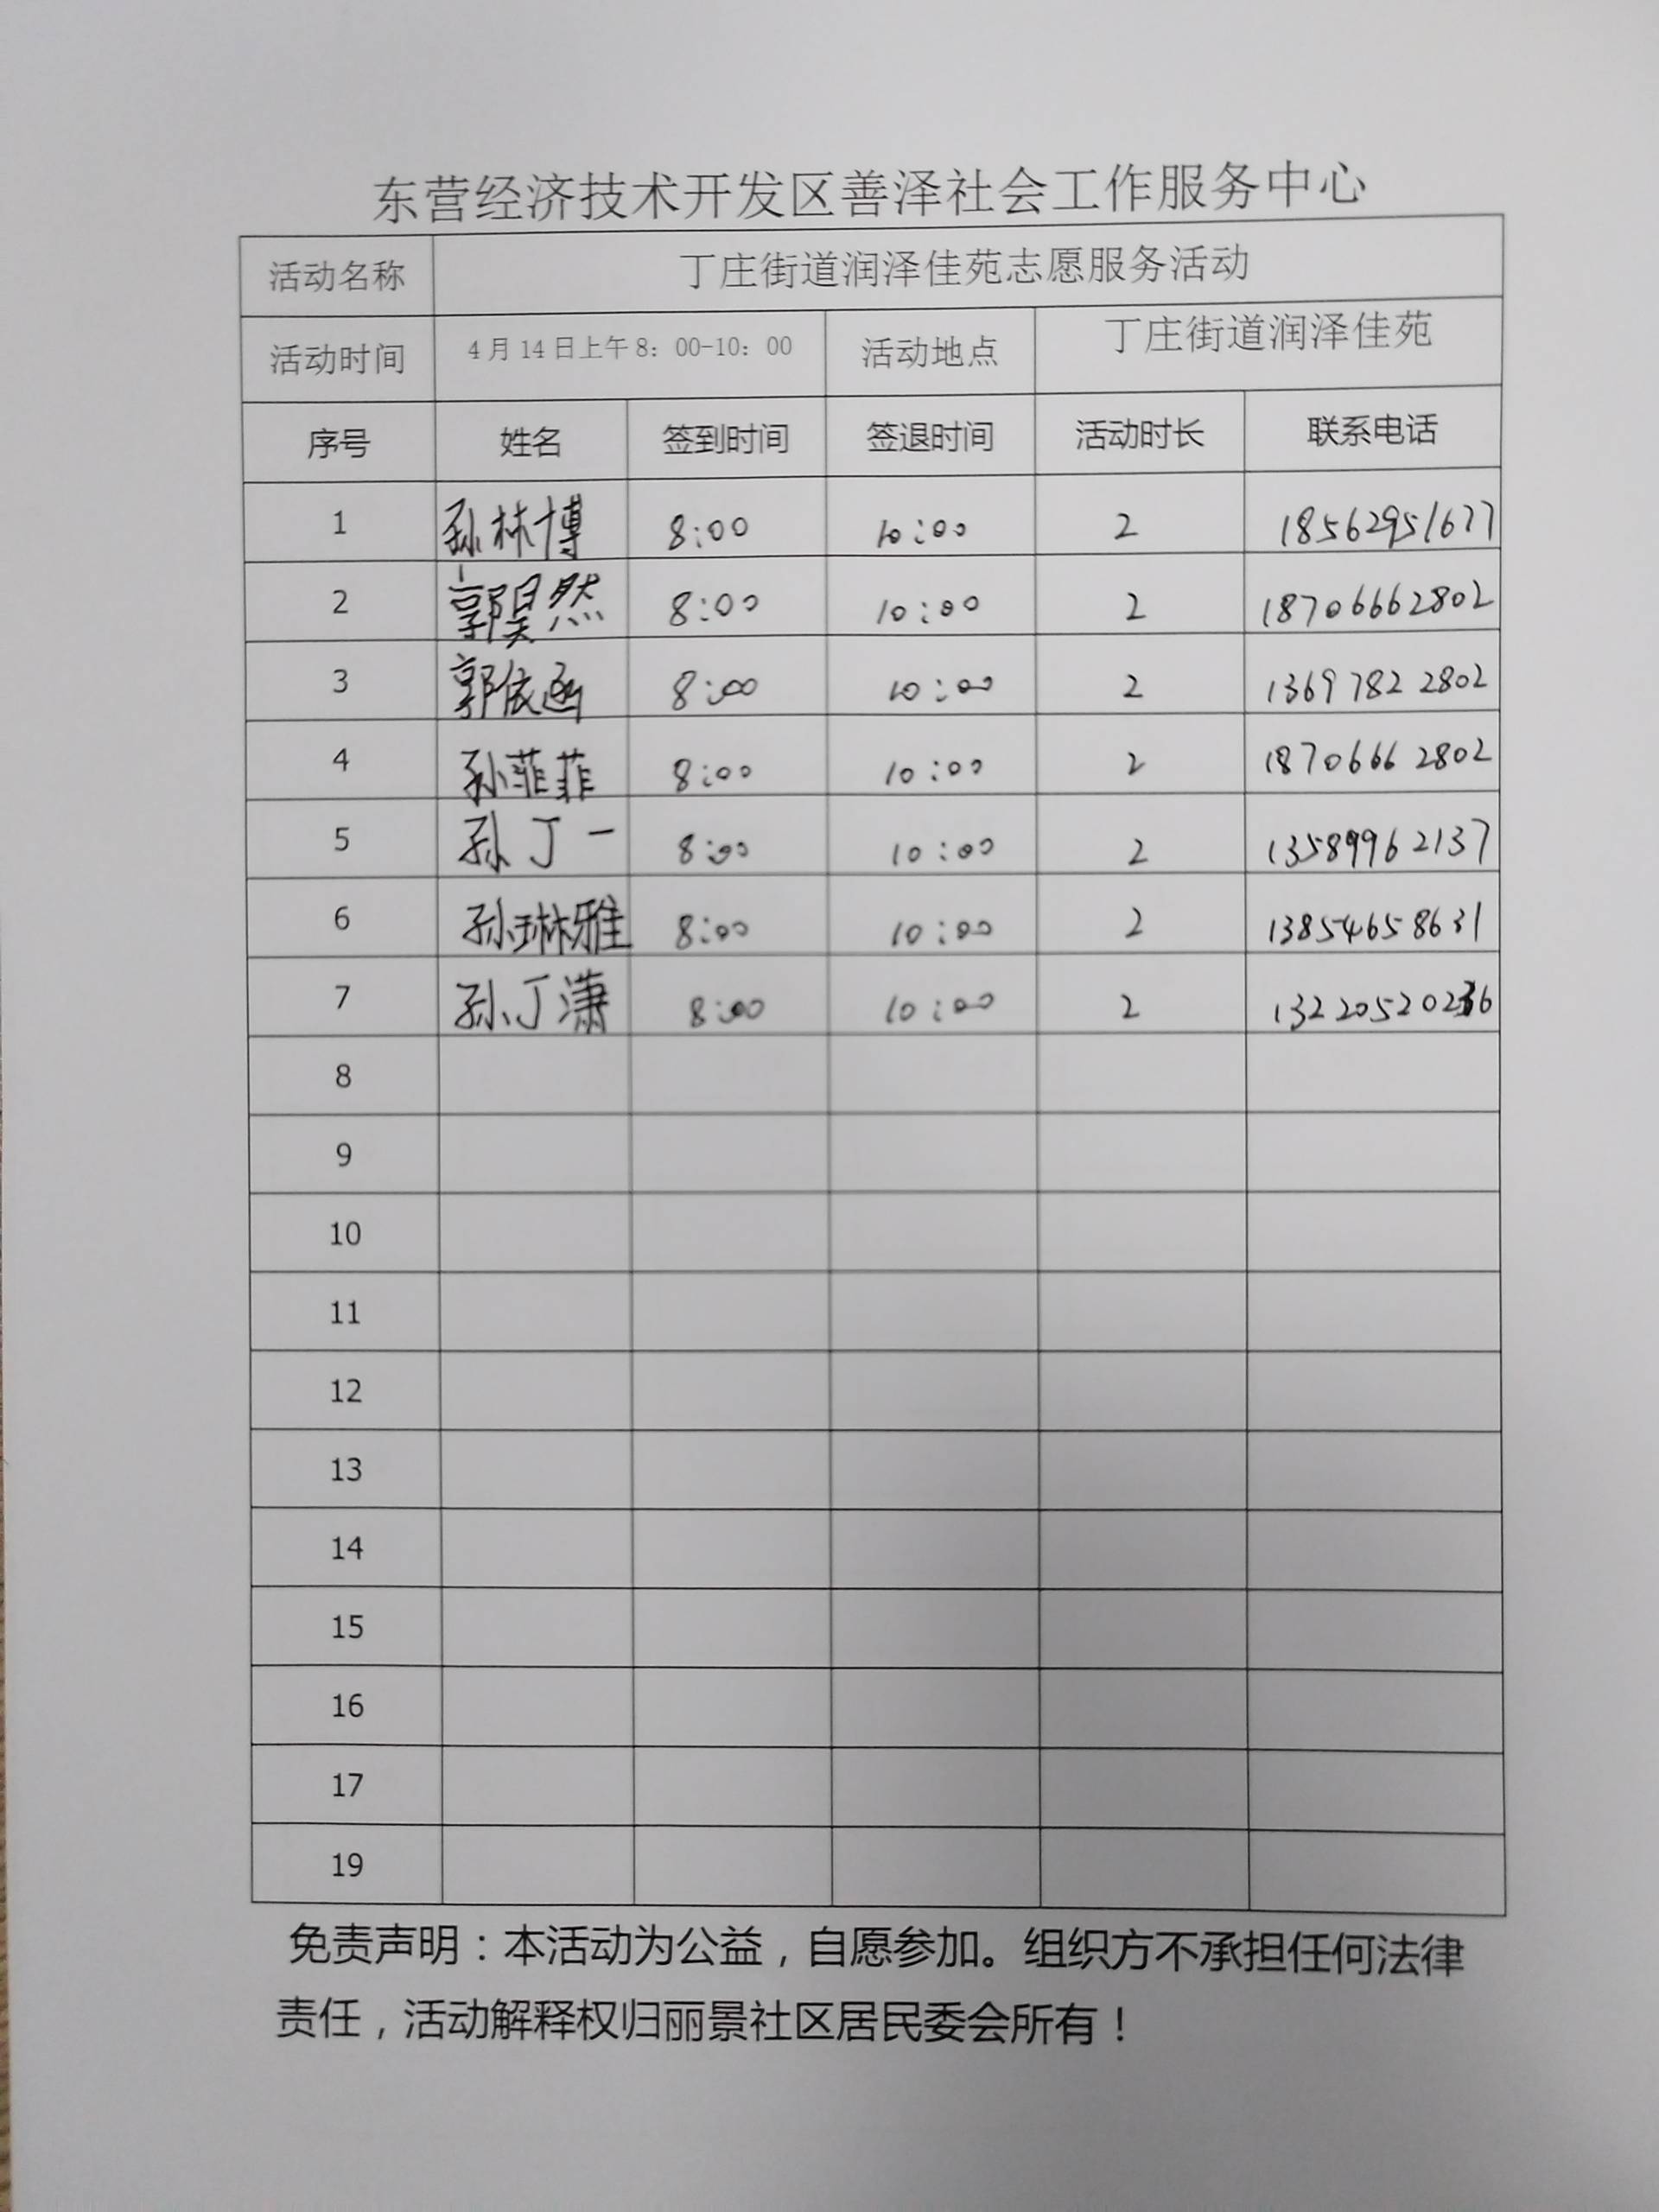 东营经济技术开发区善泽社会工作服务中心
活动名称 丁庄街道润泽佳苑志愿服务活动
活动时间 4月14日上午8：00-10：00 活动地点 丁庄街道润泽佳苑
序号 姓名 签到时间 签退时间 活动时长 联系电话
1 孙林博 8:00 10:00 2 18562951677
2 郭昊然 8:00 10:00 2 18706662802
3 郭依函 8:00 10:00 2 13697822802
4 孙菲菲 8:00 10:00 2 18706662802
5 孙丁一 8:00 10:00 2 13589962137
6 孙琳雅 8:00 10:00 2 13854658631
7 孙丁潇 8:00 10:00 2
8
9
10
11
12
13
14
15
16
17
19
免责声明：本活动为公益，自愿参加。组织方不承担任何法律
责任，活动解释权归丽景社区居民委会所有！